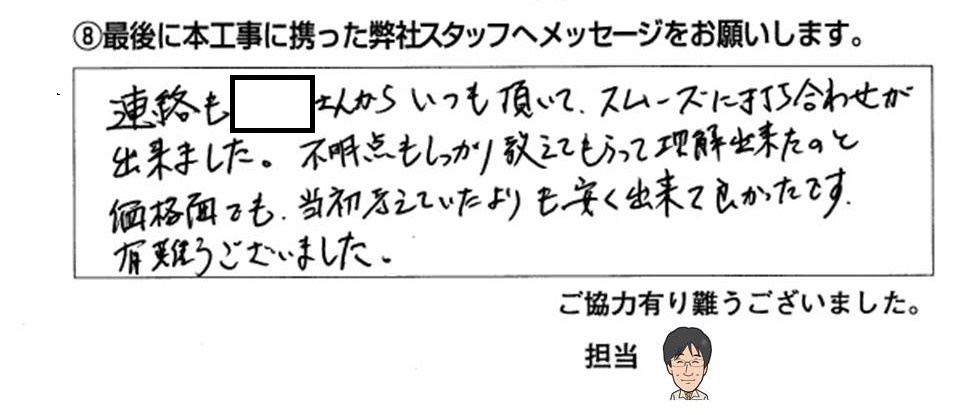 ⑧最後に本工事に携った弊社スタッフへメッセージをお願いします。
連絡も さんからいつも頂いて、スムーズに打ち合わせが
出来ました。不明点もしっかり教えてもらって理解出来たのと
価格面でも、当初考えていたよりも安く出来て良かったです.
有難うございました。
ご協力有り難うございました。
担当